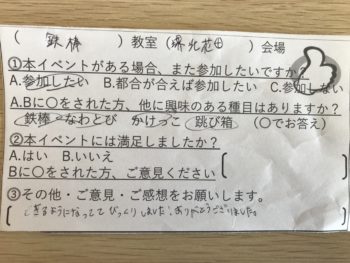 ( 鉄棒 )教室(堺北花田)会場
①本イベントがある場合、また参加したいですか?
A.参加したい B.都合が合えば参加したい C.参加しない
A.Bに〇をされた方、他に興味のある種目はありますか?
鉄棒 なわとび かけっこ 跳び箱 (〇でお答え)
②本イベントには満足しましたか?
A.はい B.いいえ
Bに〇をされた方、ご意見ください
③その他・ご意見・ご感想をお願いします。
できるようになっててびっくりしました。ありがとうございました。